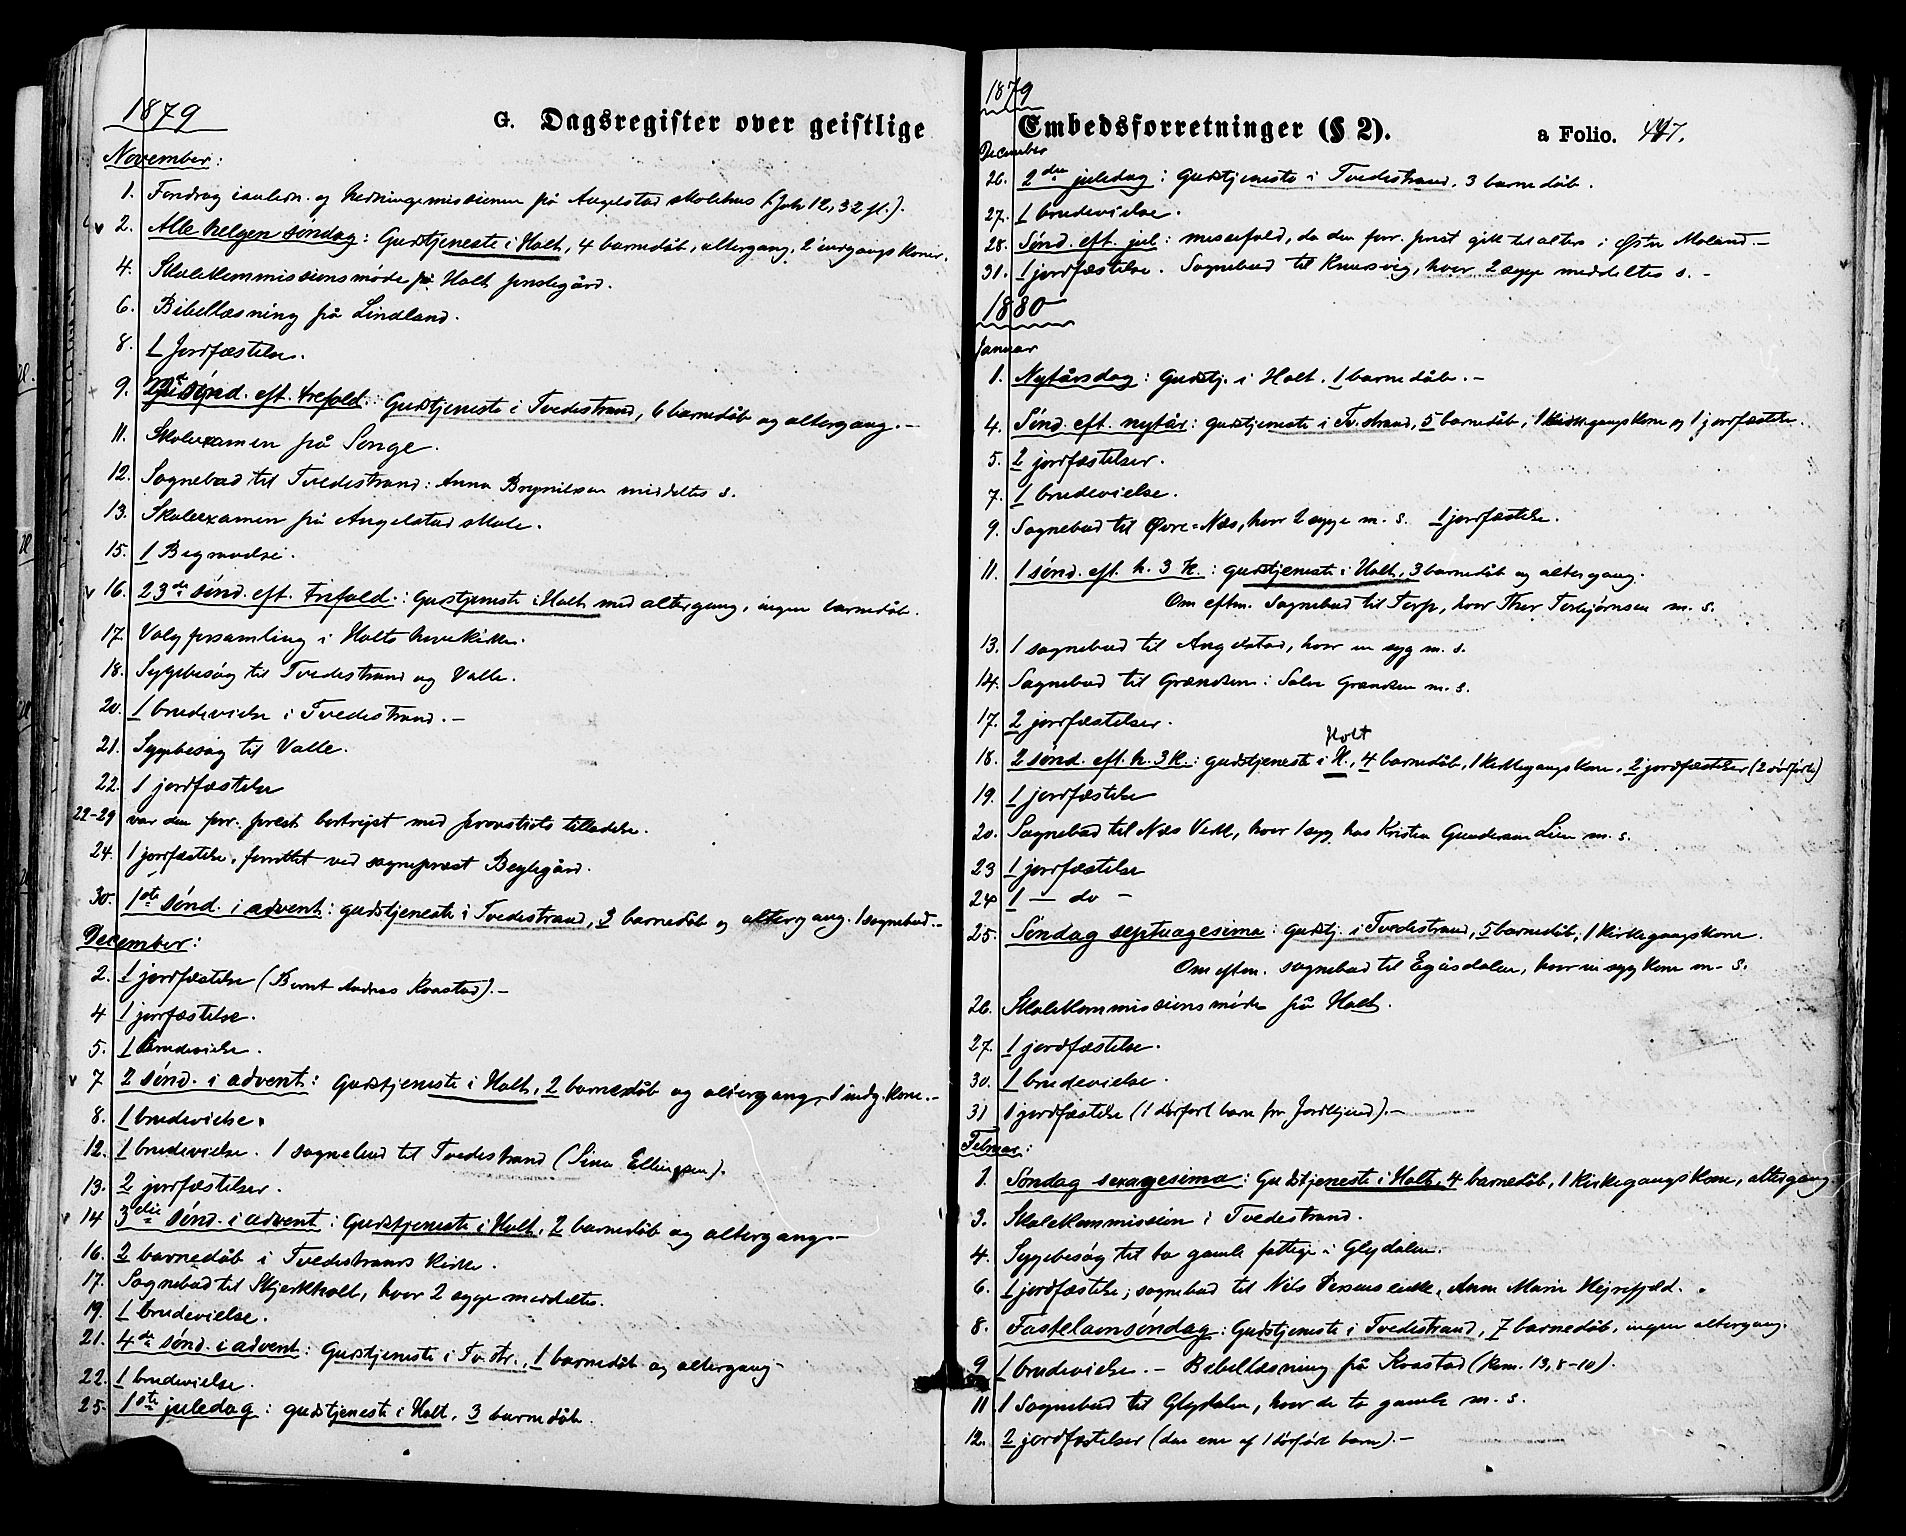 1879
G. Dagsregister over geistlige
November:
1. Foredrag i anledn. af Hedningemissionen på Angelstad skolehus (Joh 12, 32 fl.).
2. Alle helgen søndag: Gudstjeneste i Holt, 4 barnedåb, altergang, 2 indgangskoner.
4. Skolekommissionsmøde på Holt prestegård.
6. Bibellæsning på Lindland.
8. 1 Jordfæstelse.
9. sønd. eft. trefold.: Gudstjeneste i Tvedestrand, 6 barnedåb og altergang. –
11. Skolexamen på Songe.
12. Sognebud til Tvedestrand: Anna Brynilsen meddeltes s.
13. Skolexamen på Angelstad skole.
15. 1 Begravelse.
16. 23de sønd. eft. trefold.: Gudstjeneste i Holt med altergang, ingen barnedåb.
17. Valgforsamling i Holts hovedkirke.
18. Sygebesøg til Tvedestrand og Valle.
20. 1 brudevielse i Tvedestrand. –
21. Sygebesøg til Valle.
22. 1 jordfæstelse
22-29 var den forr. prest bortrejst med provstiets tilladelse.
24. 1 jordfæstelse, forrettet ved sogneprest Beglegård.
30. 1ste sønd. i advent: gudstjeneste i Tvedestrand, 3 barnedåb og altergang. 1 sognebud. –
December:
2. 1 jordfæstelse (Bernt Andreas Kvastad). –
4 1 jorfæstelse.
5. 1 Brudevielse.
7 2 sønd. i advent: Gudstjeneste i Holt, 2 barnedåb og altergang, 1 indg.kone. –
8. 1 brudevielse.
12. 1 brudevielse. 1 sognebud til Tvedestrand (Sina Ellingsen).
13. 2 jorfæstelser.
14 3die sønd. i advent: Gudstjeneste i Holt, 2 barnedåb og altergang. –
16. 2 barnedåb i Tvedestrands kirke.
17. Sognebud til Skjerkholt, hvor 2 syge meddeltes.
19. 1 brudevielse.
21. 4de sønd. i advent: Gudstjeneste i Tv.str., 1 barnedåb og altergang –
22. 1 brudevielse.
25. 1ste juledag: gudstjeneste i Holt, 3 barnedåb.
1879
Embedsforretninger (§ 2). a Folio. 447.
December
26. 2den juledag: Gudstjeneste i Tvedestrand, 3 barnedåb.
27. 1 brudevielse.
28. Sønd. eft. jul: messefald, da den forr. prest gik til alters i Østre Moland. –
31. 1 jordfæstelse. Sognebud til Knutsvig, hvor 2 syge meddeltes s. –
1880
Januar
1. Nytårsdag: Gudstj. i Holt. 1 barnedåb. –
4. Sønd. eft. nytår: gudstjeneste i Tv.strand, 5 barnedåb, 1 kirkegangskone og 1 jordfæstelse.
5. 2 jordfæstelser.
7. 1 brudevielse.
9. Sognebud til Øvre-Næs, hvor 2 syge m. s. 1 jordfæstelse.
11. 1 sønd. eft. h. 3 k.: gudstjeneste i Holt, 3 barnedåb og altergang.
Om eftm. Sognebud til Torp, hvor Thor Torbjørnsen m. s.
13. 1 sognebud til Angelstad, hvor en syg m. s.
14. Sognebud til Grændsen: Salve Grændsen m. s.
17. 2 jorfæstelser.
Holt
18. 2 sønd. eft. h. 3 k.: gudstjeneste i H., 4 barnedåb, 1 kirkegangskone, 2 jordfæstelser (2 dødfødte)
19. 1 jordfæstelse
20. Sognebud til Næs Verk, hvor 1 syg hos Kristen Gundersen Lien m. s.
23 1 jordfæstelse
24 1 – do –
25. Søndag septuagesima: Gudstj. i Tvedestrand, 5 barnedåb, 1 kirkegangskone.
Om eftm. sognebud til Egisdalen, hvor en syg kone m. s.
26. Skolekommissionsmøde på Holt.
27. 1 jordfæstelse.
30. 1 brudevielse.
31 1 jordfæstelse (1 dødfødt barn fra ). –
Februar:
1. Søndag sexagesima: Gudstjeneste i Holt, 4 barnedåb, 1 kirkegangskone, altergang.
3. Skolekommission i Tvedestrand.
4. Sygebesøg til to gamle fattige i Glydalen.
6. 1 jordfæstelse; sognebud til Nils enke, Anne Marie Hejrefjeld.
8. Fastelavnsøndag: Gudstjeneste i Tvedestrand, 7 barnedåb, ingen altergang.
9 1 brudevielse. – Bibellæsning på Kvastad (Rom. 13, 8-10).
11 1 Sognebud til Glydalen, hvor de to gamle m. s.
12. 2 jordfæstelser (den ene af 1 dødfødt barn). –